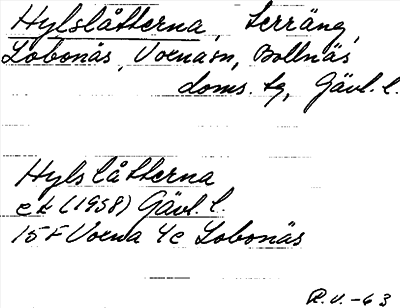 Hylslåtterna, Terräng,
Lobonäs, Voxna sn, Bollnäs
doms. tg, Gävl. l.
Hylslåtterna
ek (1958) Gävl. l.
15 F Voxna 4c Lobonäs
R.V. -63